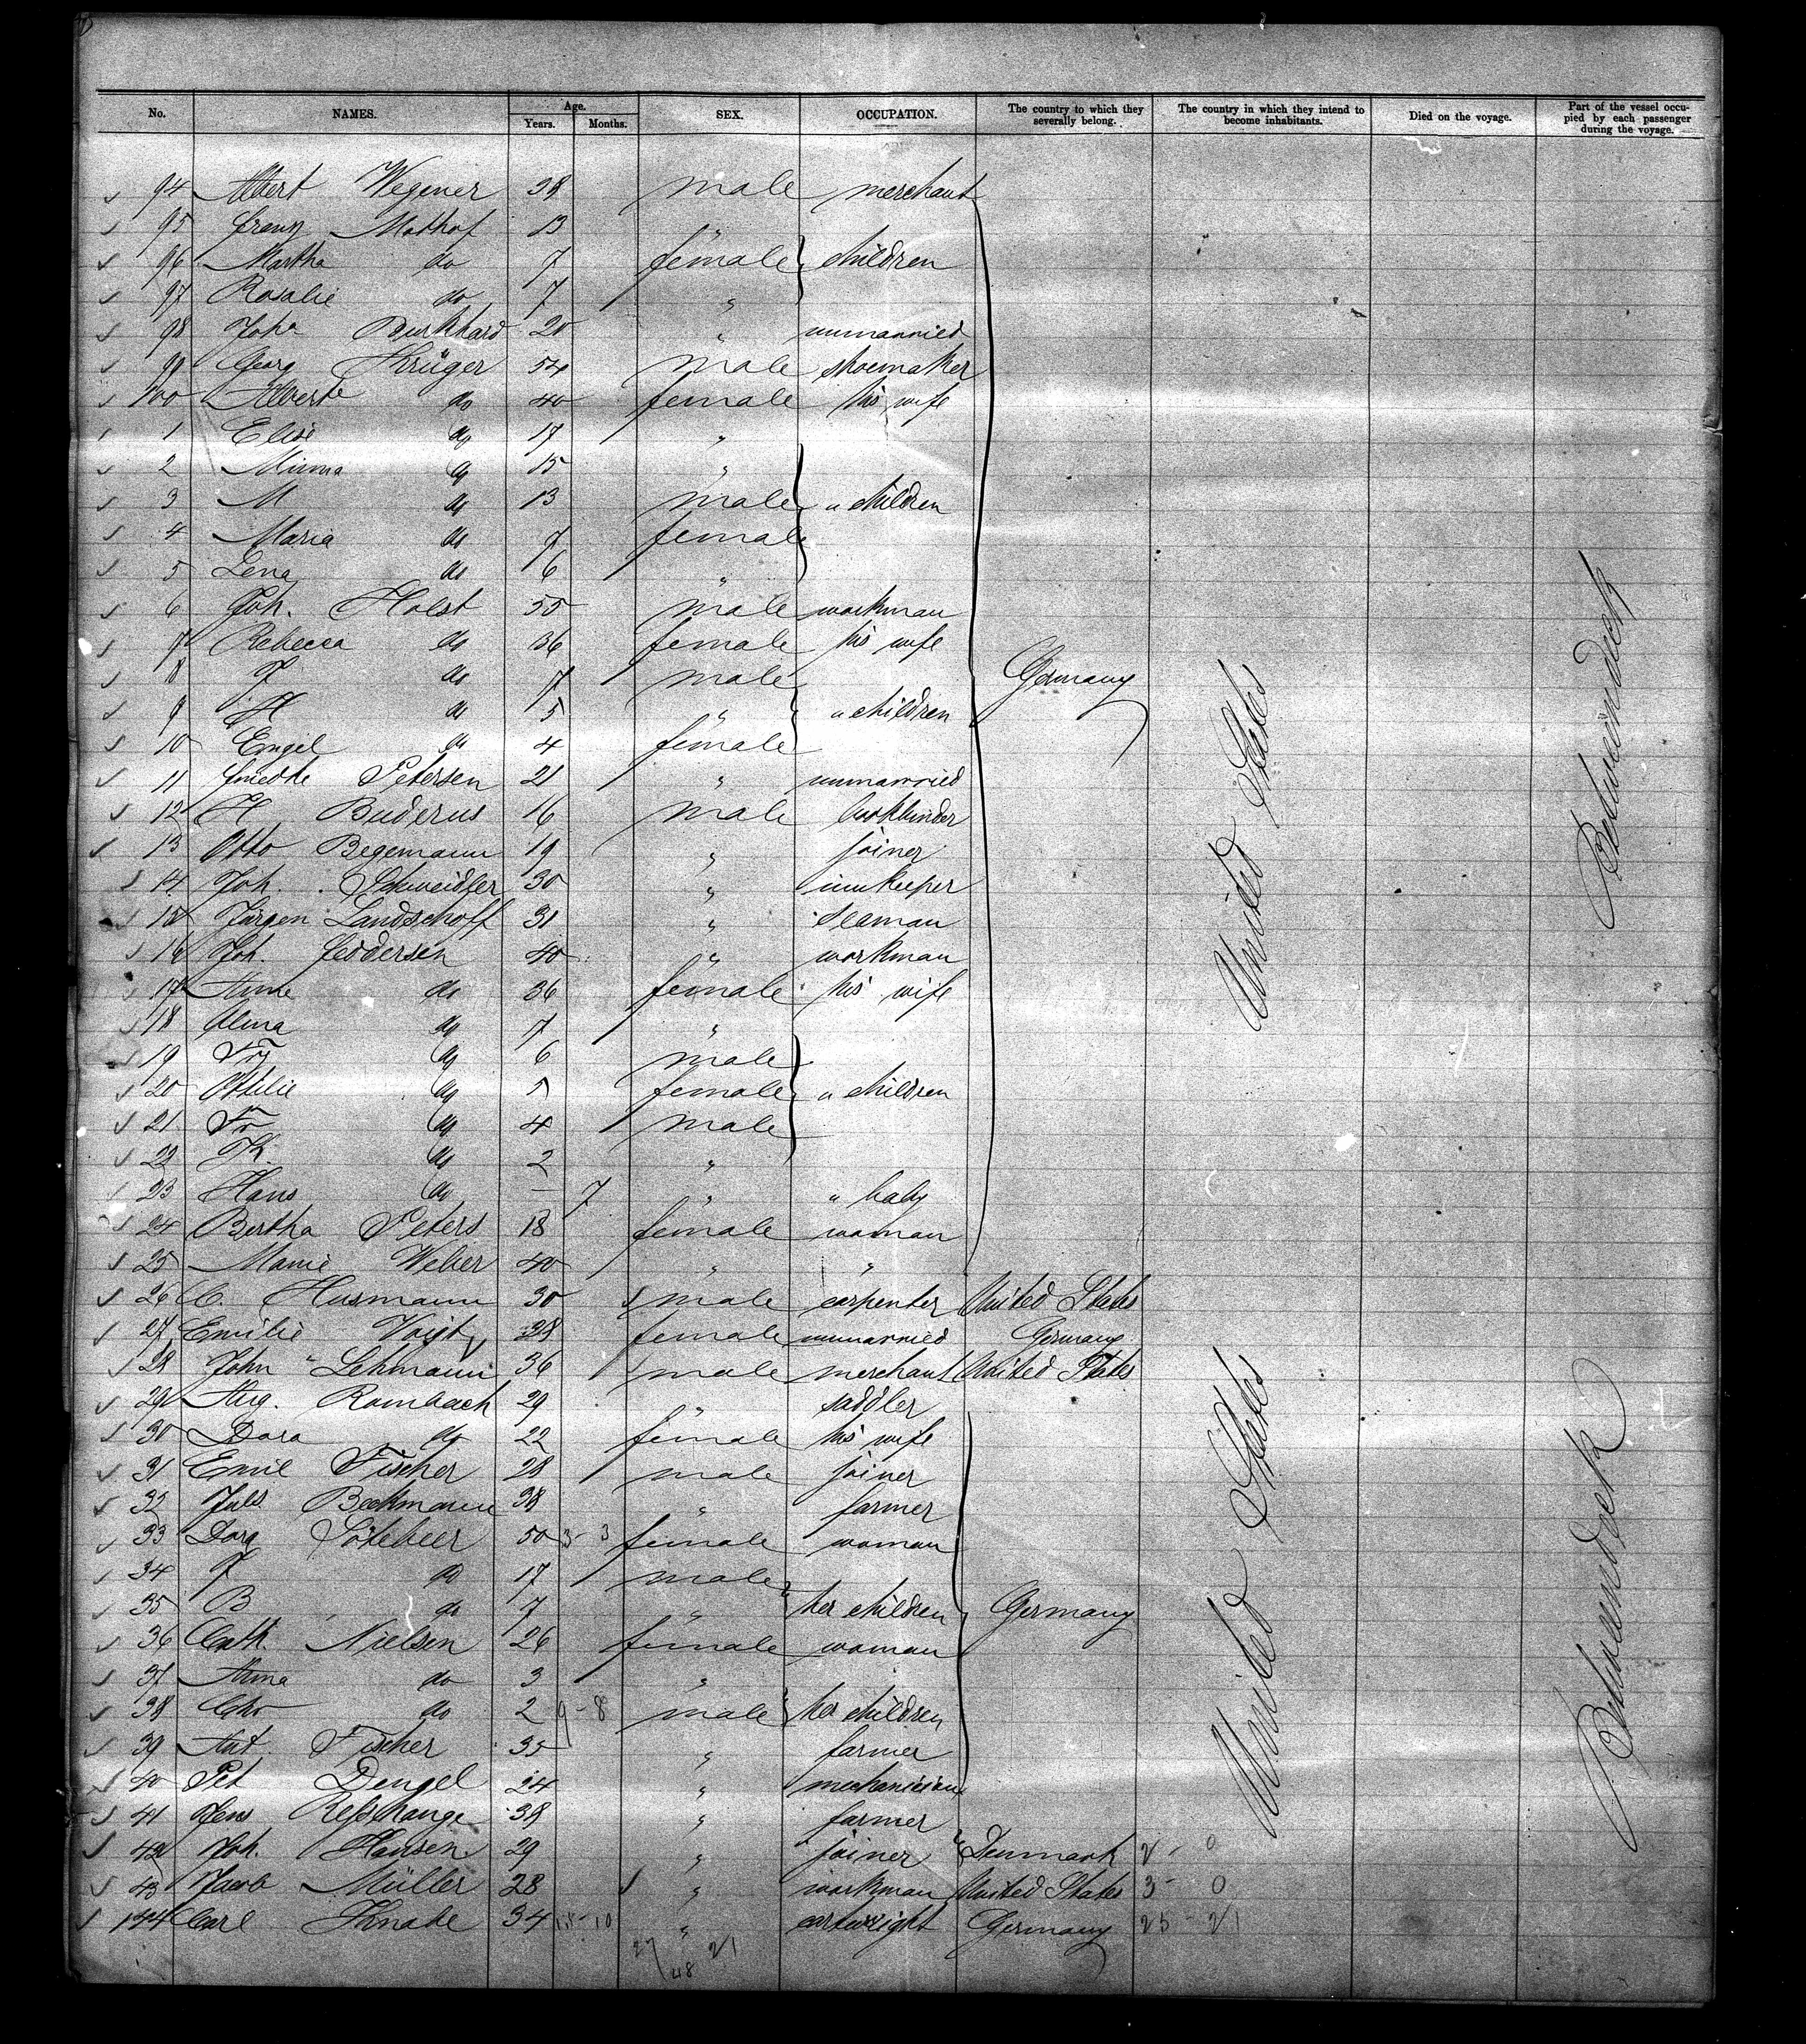 No. NAMES. Age. Years. Months. SEX. OCCUPATION. The country to which they severally belong. The country in which they intend to become inhabitants. Died on the voyage. Part of the vessel occupied by each passenger during the voyage.
94 Albert Wegener 38 male merchant
95 Franz Mathof 13 "
96 Martha do 7 female children
97 Rosalie do 7 "
98 Joha Burkhard 20 " unmarried
99 Georg Krüger 54 male shoemaker
100 Alberte do 40 female his wife
1 Elise do 17 "
2 Minna do 15 "
3 M do 13 male " children
4 Maria do 7 female
5 Lena do 6 "
6 Joh. Holst 55 male workman
7 Rebecca do 36 female his wife
8 J do 7 male Germany
9 H do 5 " " children
10 Engel do 4 female
11 Petersen 21 " unmarried
12 H Buderus 16 male bookbinder
13 Otto Begemann 19 " joiner
14 Joh. Schweidler 30 " innkeeper
15 Jürgen Landschoff 31 " seaman
16 Joh. Feddersen 40 " workman
17 Anne do 36 female his wife
18 Alma do 7 "
19 do 6 male
20 Ottilie do 5 female " children
21 Fr do 4 male
22 Th. do 2 "
23 Hans do – 7 " " baby
24 Bertha Peters 18 female woman
25 Marie Weber 40 " "
26 C. Husmann 30 male carpenter United States
27 Emilie Voigt 38 female unmarried Germany
28 John Lehmann 36 male merchant United States
29 Aug. Rombach 29 " saddler
30 Dora do 22 female his wife
31 Emil Fischer 28 male joiner
32 Juls Beckmann 38 " farmer
33 Dora Sötebeer 50 3 - 3 female woman
34 J do 17 male
35 B do 7 " her children Germany
36 Cath. Nielsen 26 female woman
37 Anna do 3 "
38 Chr do 2 9 - 8 male her children
39 Ant. Fischer 35 " farmer
40 Pet Dengel 24 " mechanician
41 Jens 38 " farmer
42 Joh. Hansen 29 " joiner Denmark 2 - 0
43 Jacob Müller 28 " workman United States 3 - 0
144 Carl Knabe 34 15 - 10 " cartwright Germany 25 - 21
27 21
48
United States
United States
Betweendeck
Betweendeck